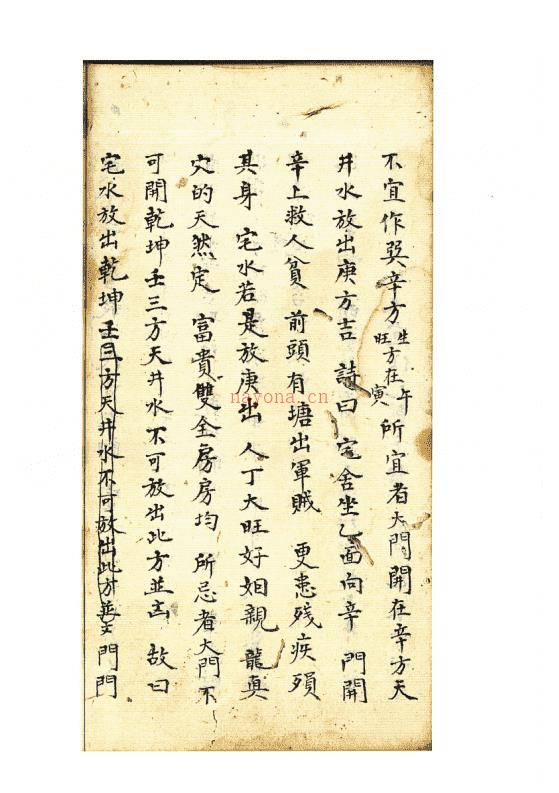 不宜作巽辛方生旺方在午寅所宜者大門開在辛方天
井水放出庚方吉 詩曰 宅舍坐乙面向辛 門開
辛上救人貧 前頭有塘出軍賊 更患残疾殞
其身 宅水若是放庚出 人丁大旺好姻親 龍真
穴的天然定 富貴雙全房房均 所忌者大門不
可開乾坤壬三方天井水不可放出此方並凶 故曰
宅水放出乾坤壬三方天井水不可放出此方並 門門
nayona.cn